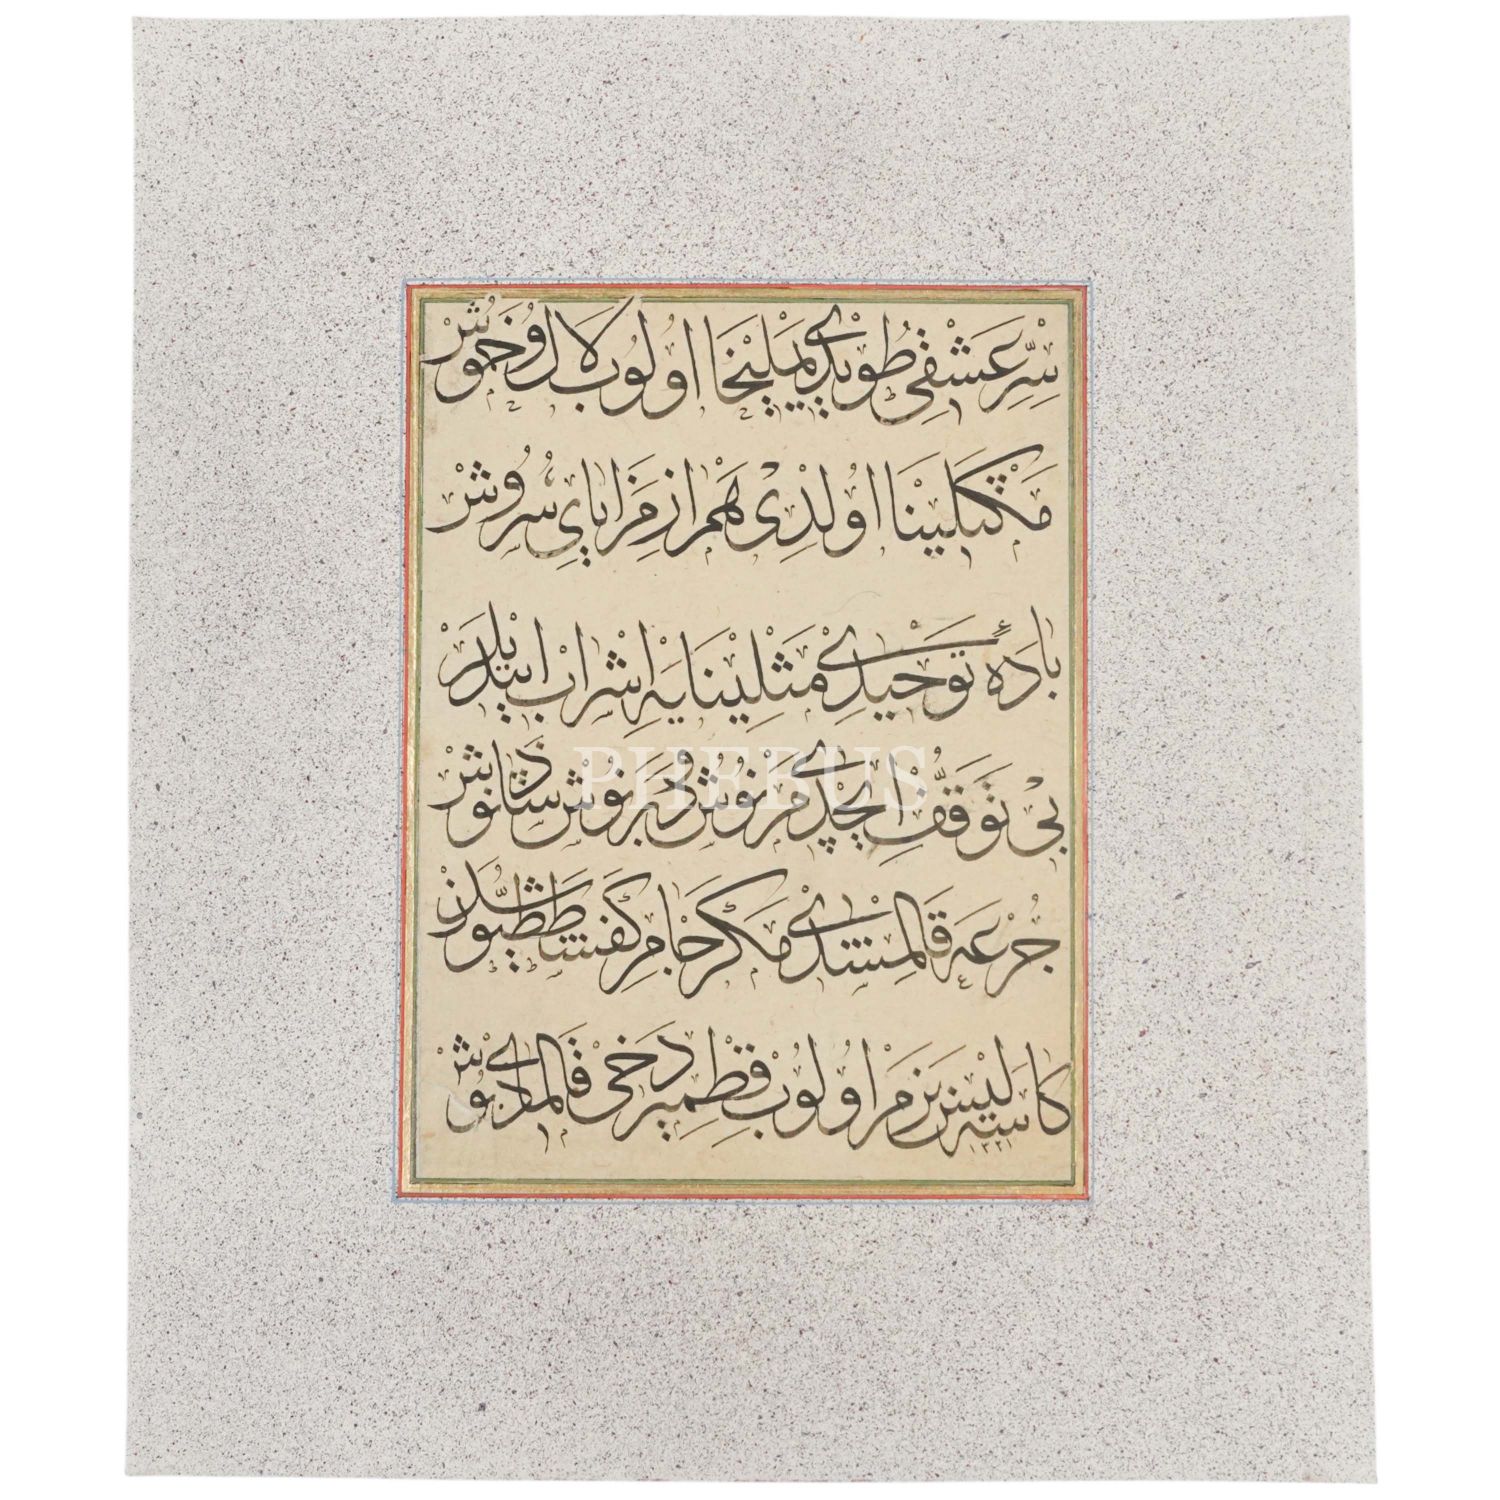 سِرِّ عَشْقِی طُویْدِی یَمْلِیْخَا اوُلوُب لَالُ وُ خَموُشْ
مَكْثَلینَا اوُلْدِیْ هَمْرازِ مَزَایَایِ سُروُشْ
بادَهٔ تَوْحیدِی مَثْلِیْنَا یَه اِشْرابْ ایتْدِیلَرْ
بیْ تَوَقُّفْ ایچْدِی مَرْنوُشْ و دَبَرْنوُشْ شَاذَنوُشْ
جُرْعَه قَالْمِشْدِی مَكَرْ جَامِ كَفَشْطَطَیّوُشَدَنْ
كاسَه لیْسِ بَزْم اوُلوُبْ قِطْمِیر دَخیْ قَالْمَادِیْ بوُشْ
١٣٢١
PHEBUS